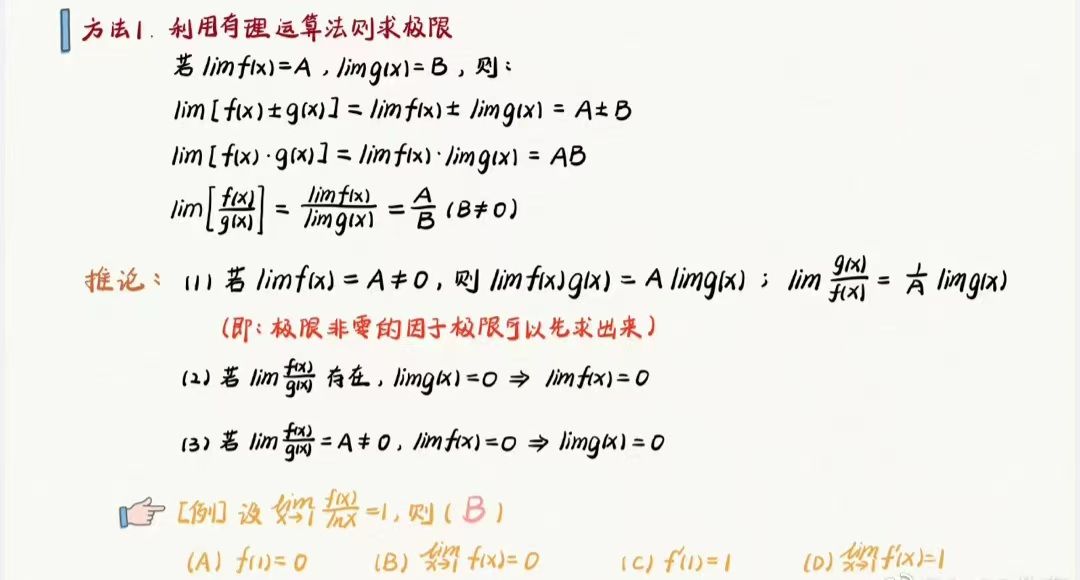 方法1. 利用有理运算法则求极限
若 lim f(x)=A , lim g(x)=B , 则:
lim [ f(x) ± g(x) ] = lim f(x) ± lim g(x) = A ± B
lim [ f(x) · g(x) ] = lim f(x) · lim g(x) = AB
lim [ f(x)/g(x) ] = lim f(x)/lim g(x) = A/B (B≠0)
推论: (1) 若 lim f(x) = A ≠ 0 , 则 lim f(x)g(x) = A lim g(x) ; lim g(x)/f(x) = 1/A lim g(x)
(即: 极限非零的因子极限可以先求出来)
(2) 若 lim f(x)/g(x) 存在, lim g(x) = 0 ⇒ lim f(x) = 0
(3) 若 lim f(x)/g(x) = A ≠ 0, lim f(x) = 0 ⇒ lim g(x) = 0
[例] 设 lim x→1 f(x)/lnx =1, 则 ( B )
(A) f(1)=0 (B) lim x→1 f(x)=0 (C) f'(1)=1 (D) lim x→1 f'(x)=1